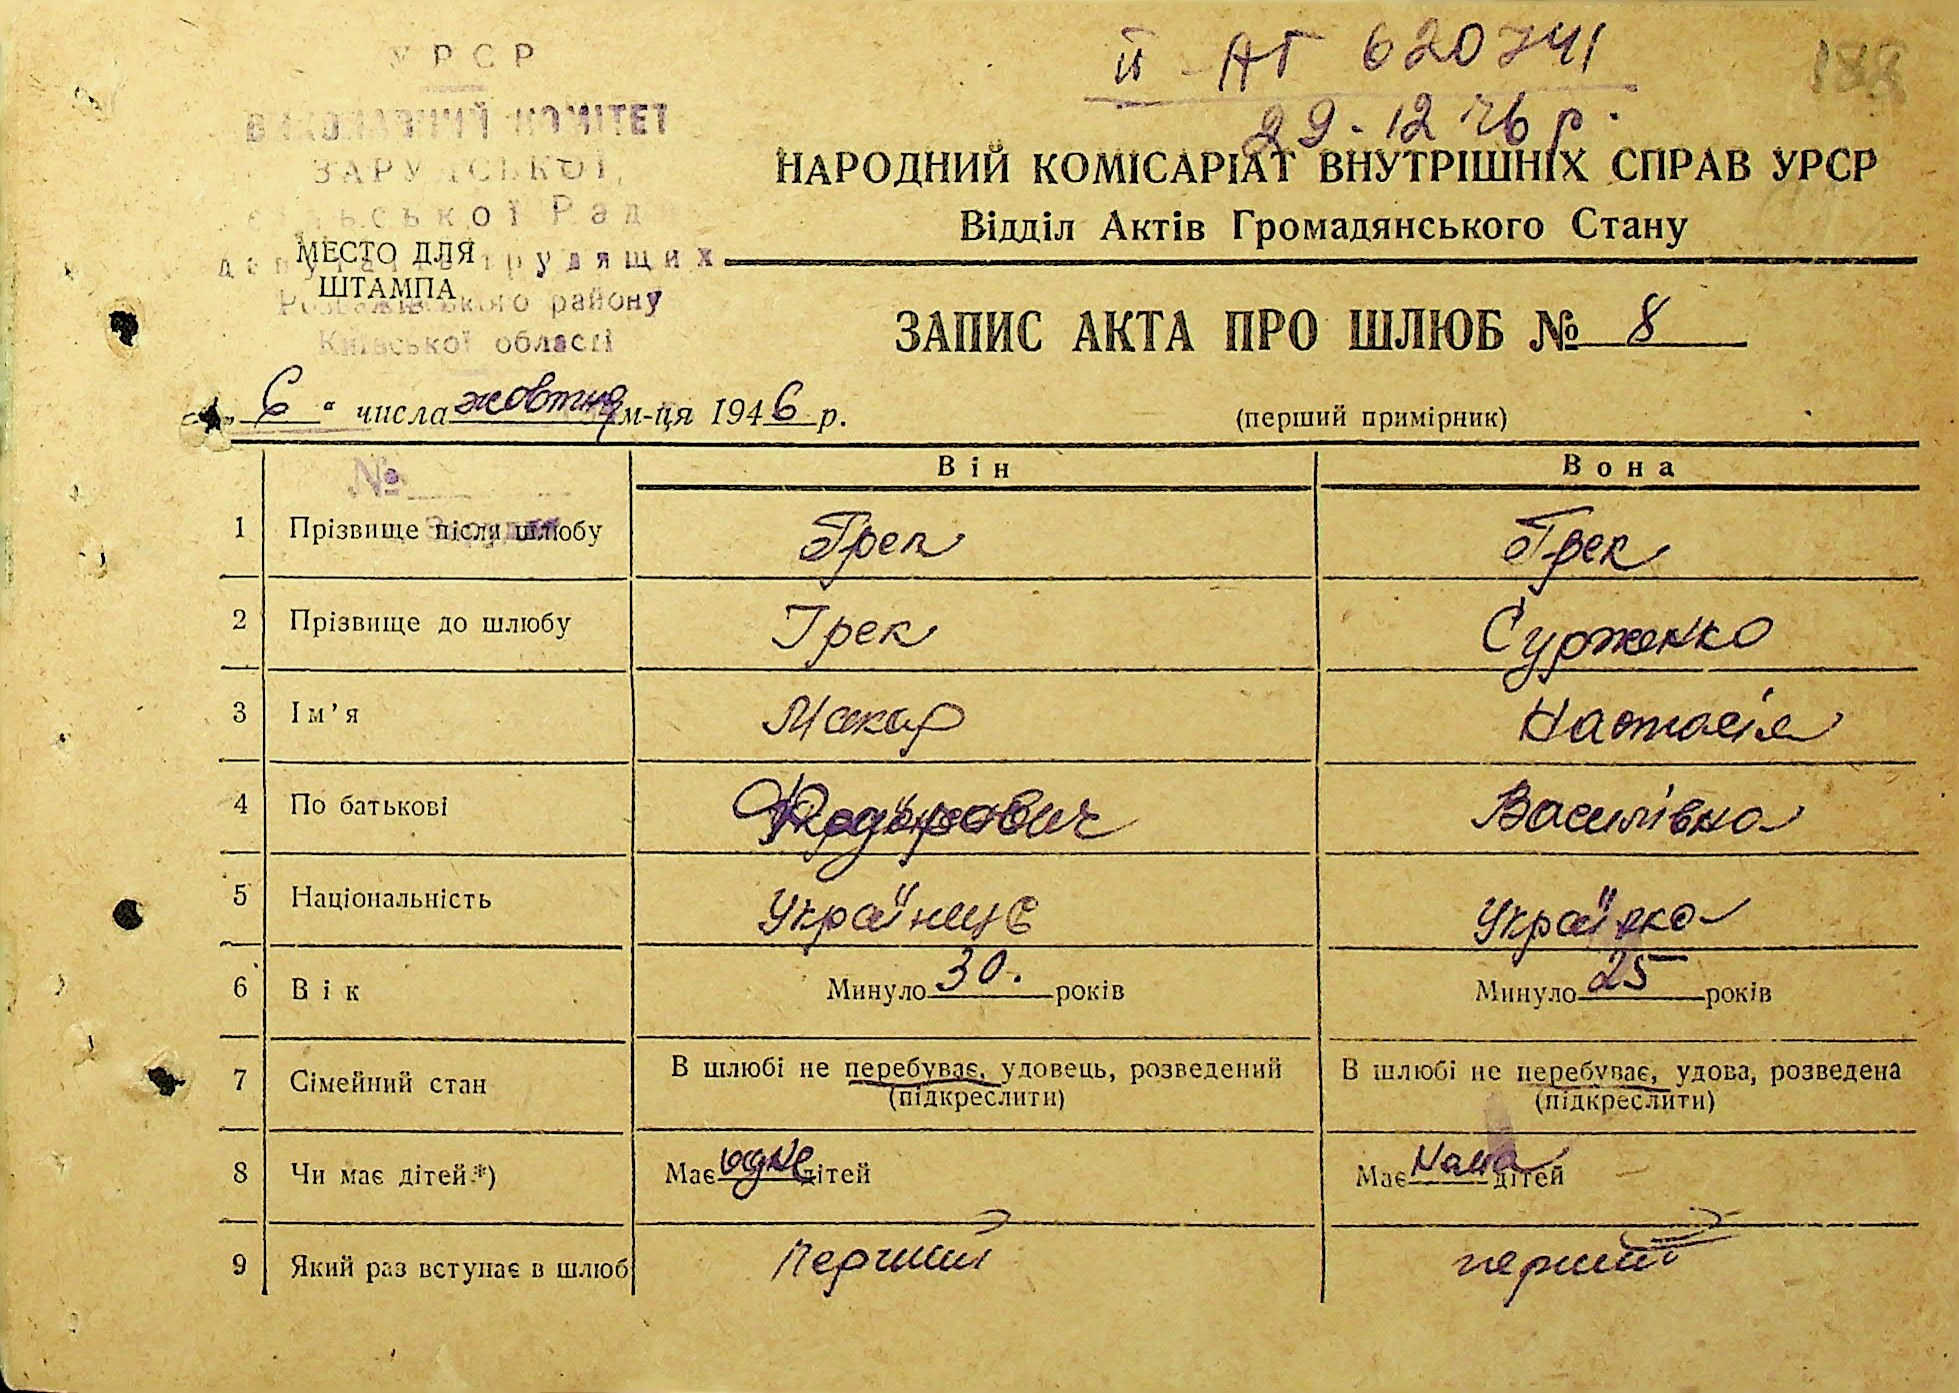 II - АГ 620741
29.12 76 р.
188
УРСР
ВИКОНАВЧИЙ КОМІТЕТ
сільської Рад
депутатів трудящих
району
Київської області
МЕСТО ДЛЯ
ШТАМПА
НАРОДНИЙ КОМІСАРІАТ ВНУТРІШНІХ СПРАВ УРСР
Відділ Актів Громадянського Стану
ЗАПИС АКТА ПРО ШЛЮБ № 8
„ 6 “ числа жовтня м-ця 1946 р.
(перший примірник)
№
Він Вона
1 Прізвище після шлюбу Грек Грек
2 Прізвище до шлюбу Грек Сурженко
3 Ім'я Макар Настасія
4 По батькові Федорович Василівна
5 Національність Українец Українка
6 Вік Минуло 30. років Минуло 25 років
7 Сімейний стан В шлюбі не перебуває, удовець, розведений В шлюбі не перебуває, удова, розведена
(підкреслити) (підкреслити)
8 Чи має дітей*) Має одне дітей Має дітей
9 Який раз вступає в шлюб Перший перший